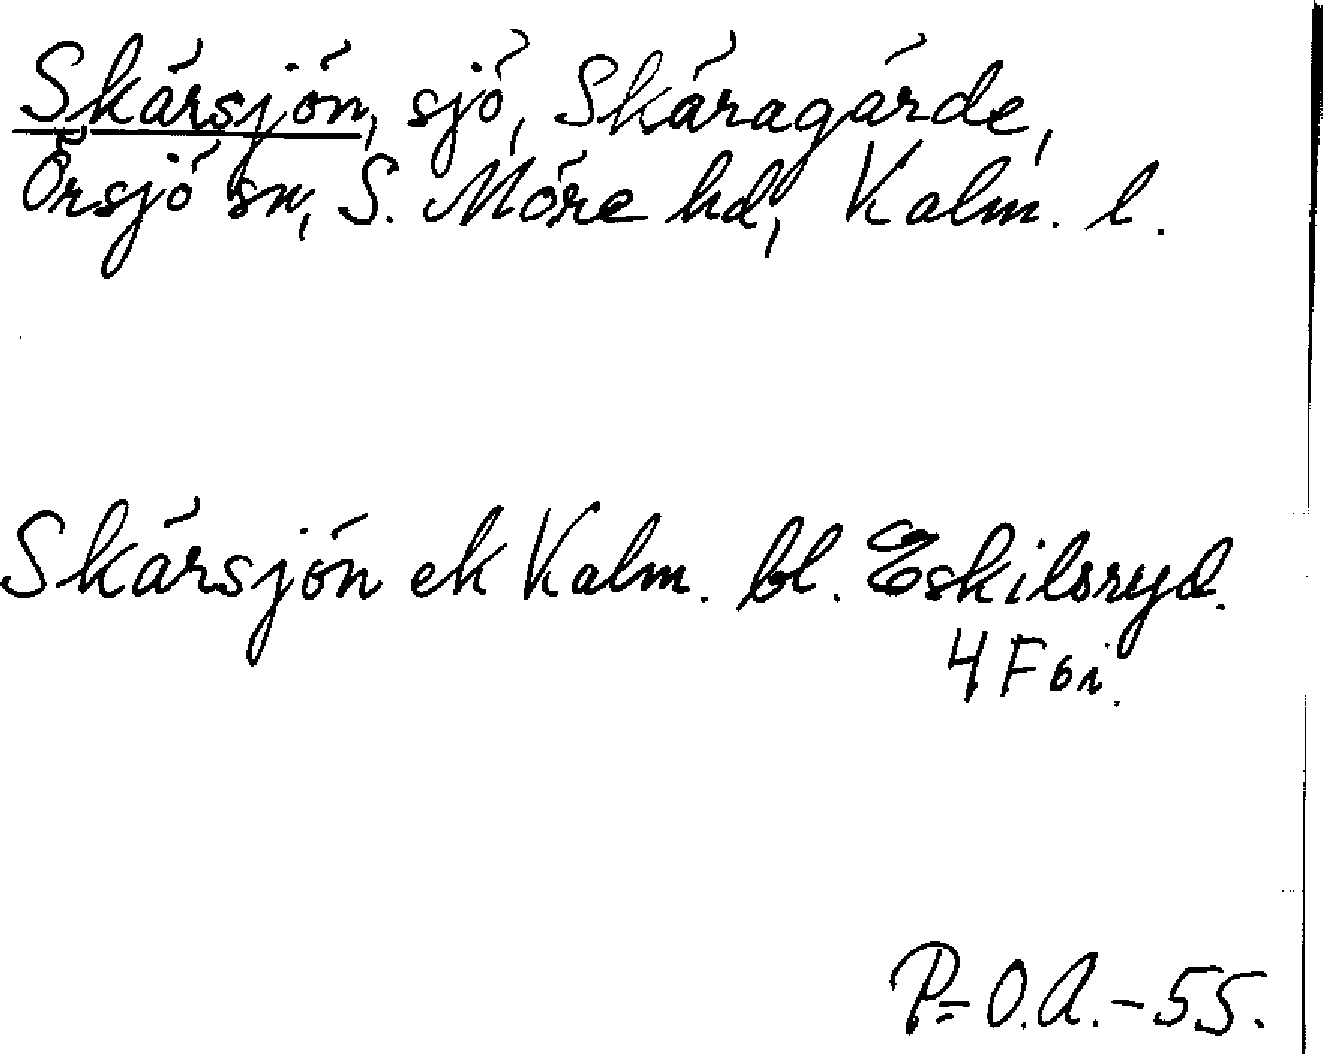 Skärsjön, sjö, Skäragärde,
Örsjö sn, S. Möre hd, Kalm. l.
Skärsjön ek Kalm. bl. Eskilsryd.
4 F 6 i.
P-O.A.-55.